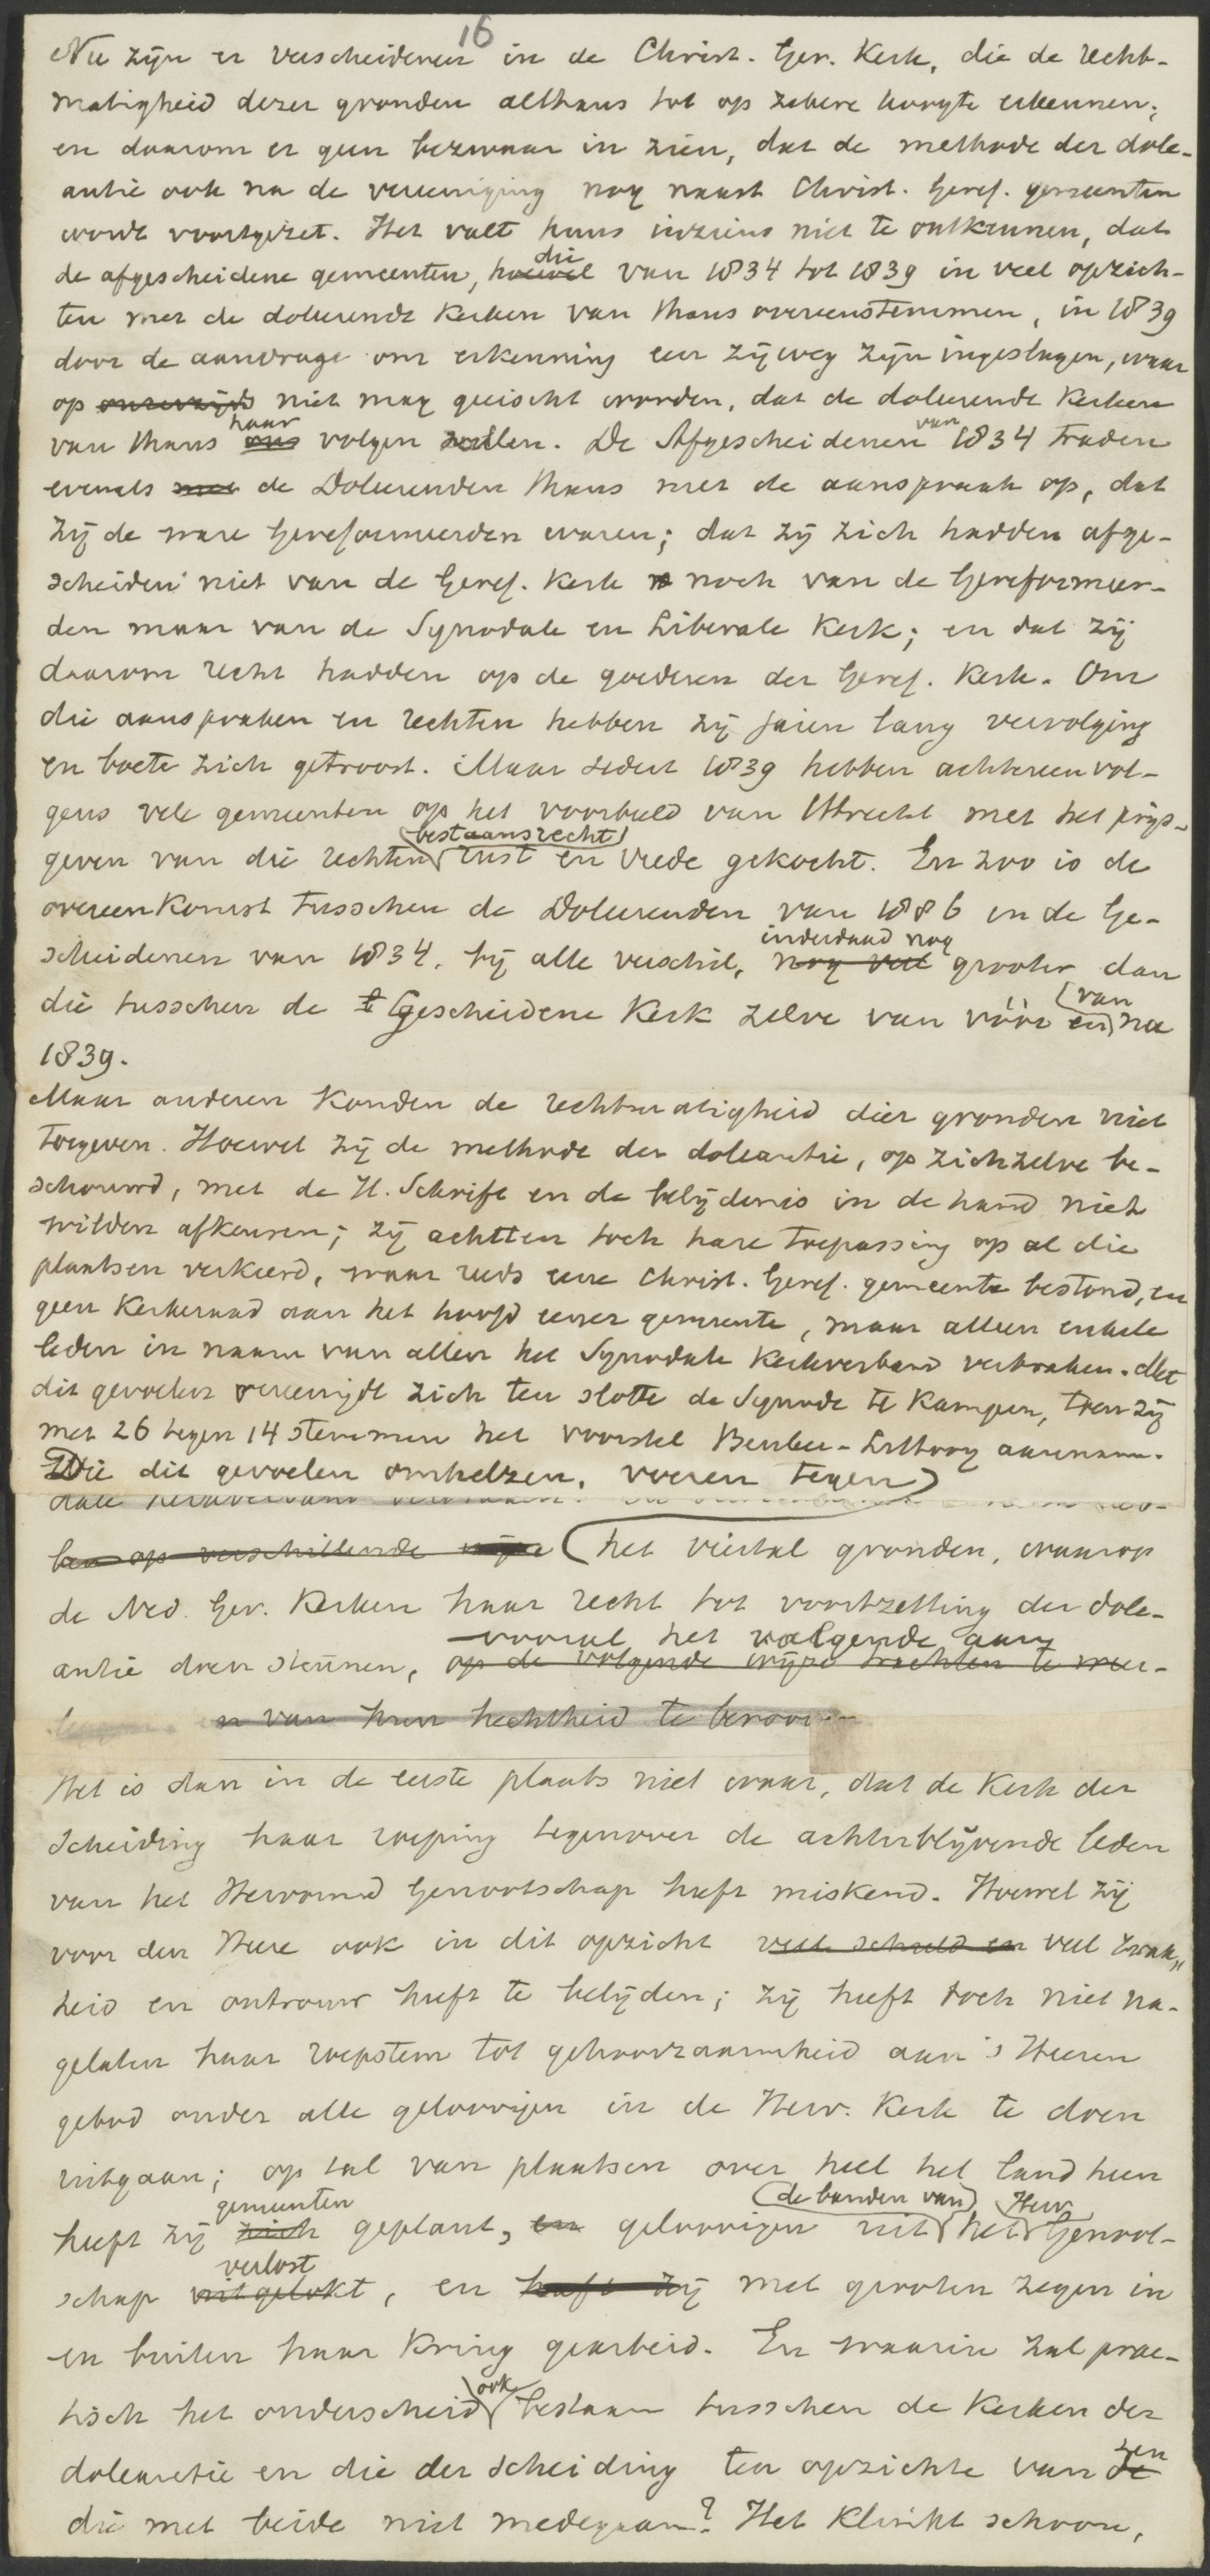 16
Nu zijn er verscheidenen in de Christ. Ger. Kerk, die de recht-
matigheid dezer gronden althans tot op zekere hoogte erkennen;
en daarom er geen bezwaar in zien, dat de methode der dole-
antie ook na de vereeniging nog naast Christ. Geref. gemeenten
wordt voortgezet. Het valt huns inziens niet te ontkennen, dat
die
de afgescheidene gemeenten, hoewel van 1834 tot 1839 in veel opzich-
ten met de doleerende Kerken van thans overeenstemmen, in 1839
door de aanvrage om erkenning een zijweg zijn ingeslagen, waar
op onzerzijds niet mag geëischt worden, dat de doleerende Kerken
haar van
van thans ons volgen zullen. De Afgescheidenen 1834 traden
evenals met de Doleerenden thans met de aanspraak op, dat
zij de ware Gereformeerden waren; dat zij zich hadden afge-
scheiden niet van de Geref. Kerk noch van de Gereformeer-
den maar van de Synodale en Liberale Kerk; en dat zij
daarom recht hadden op de goederen der Geref. Kerk. Om
die aanspraken en rechten hebben zij jaren lang vervolging
en boete zich getroost. Maar sedert 1839 hebben achtereenvol-
gens vele gemeenten op het voorbeeld van Utrecht met het prijs-
bestaansrecht
geven van die rechten rust en vrede gekocht. En zoo is de
overeenkomst tusschen de Doleerenden van 1886 en de Ge-
inderdaad nog
scheidenen van 1834, bij alle verschil, nog veel grooter dan
van
die tusschen de Gescheidene Kerk zelve van vóór en na
1839.
Maar anderen konden de rechtmatigheid dier gronden niet
toegeven. Hoewel zij de methode der doleantie, op zichzelve be-
schouwd, met de H. Schrift en de belijdenis in de hand niet
wilden afkeuren; zij achtten toch hare toepassing op al die
plaatsen verkeerd, waar reeds eene Christ. Geref. gemeente bestond, en
geen Kerkeraad aan het hoofd eener gemeente, maar alleen enkele
leden in naam van allen het Synodale Kerkverband verbraken. Met
dit gevoelen vereenigde zich ten slotte de Synode te Kampen, toen zij
met 26 tegen 14 stemmen het voorstel Beuker-Littooy aannam.
Die dit gevoelen omhelzen, voeren tegen
dale kerkverband verbraken.
ben op verschillende wijze het viertal gronden, waarop
de Ned. Ger. Kerken haar recht tot voortzetting der dole-
vooral het volgende aan
antie doen steunen, op de volgende wijze trachten te weer-
n van hun hechtheid te beroov
Het is dan in de eerste plaats niet waar, dat de Kerk der
Scheiding haar roeping tegenover de achterblijvende leden
van het Hervormd Genootschap heeft miskend. Hoewel zij
voor den Heere ook in dit opzicht veel schuld en veel zwak„
heid en ontrouw heeft te belijden; zij heeft toch niet na-
gelaten haar roepstem tot gehoorzaamheid aan 's Heeren
gebod onder alle geloovigen in de Herv. Kerk te doen
uitgaan; op tal van plaatsen over heel het land heen
gemeenten de banden van Herv.
heeft zij zich geplant, en geloovigen uit het Genoot-
verlost
schap uitgelokt, en heeft zij met grooten zegen in
en buiten haar Kring gearbeid. En waarin zal prac-
ook
tisch het onderscheid bestaan tusschen de Kerken der
hen
doleantie en die der scheiding ten opzichte van de
die met beide niet medegaan? Het klinkt schoon,